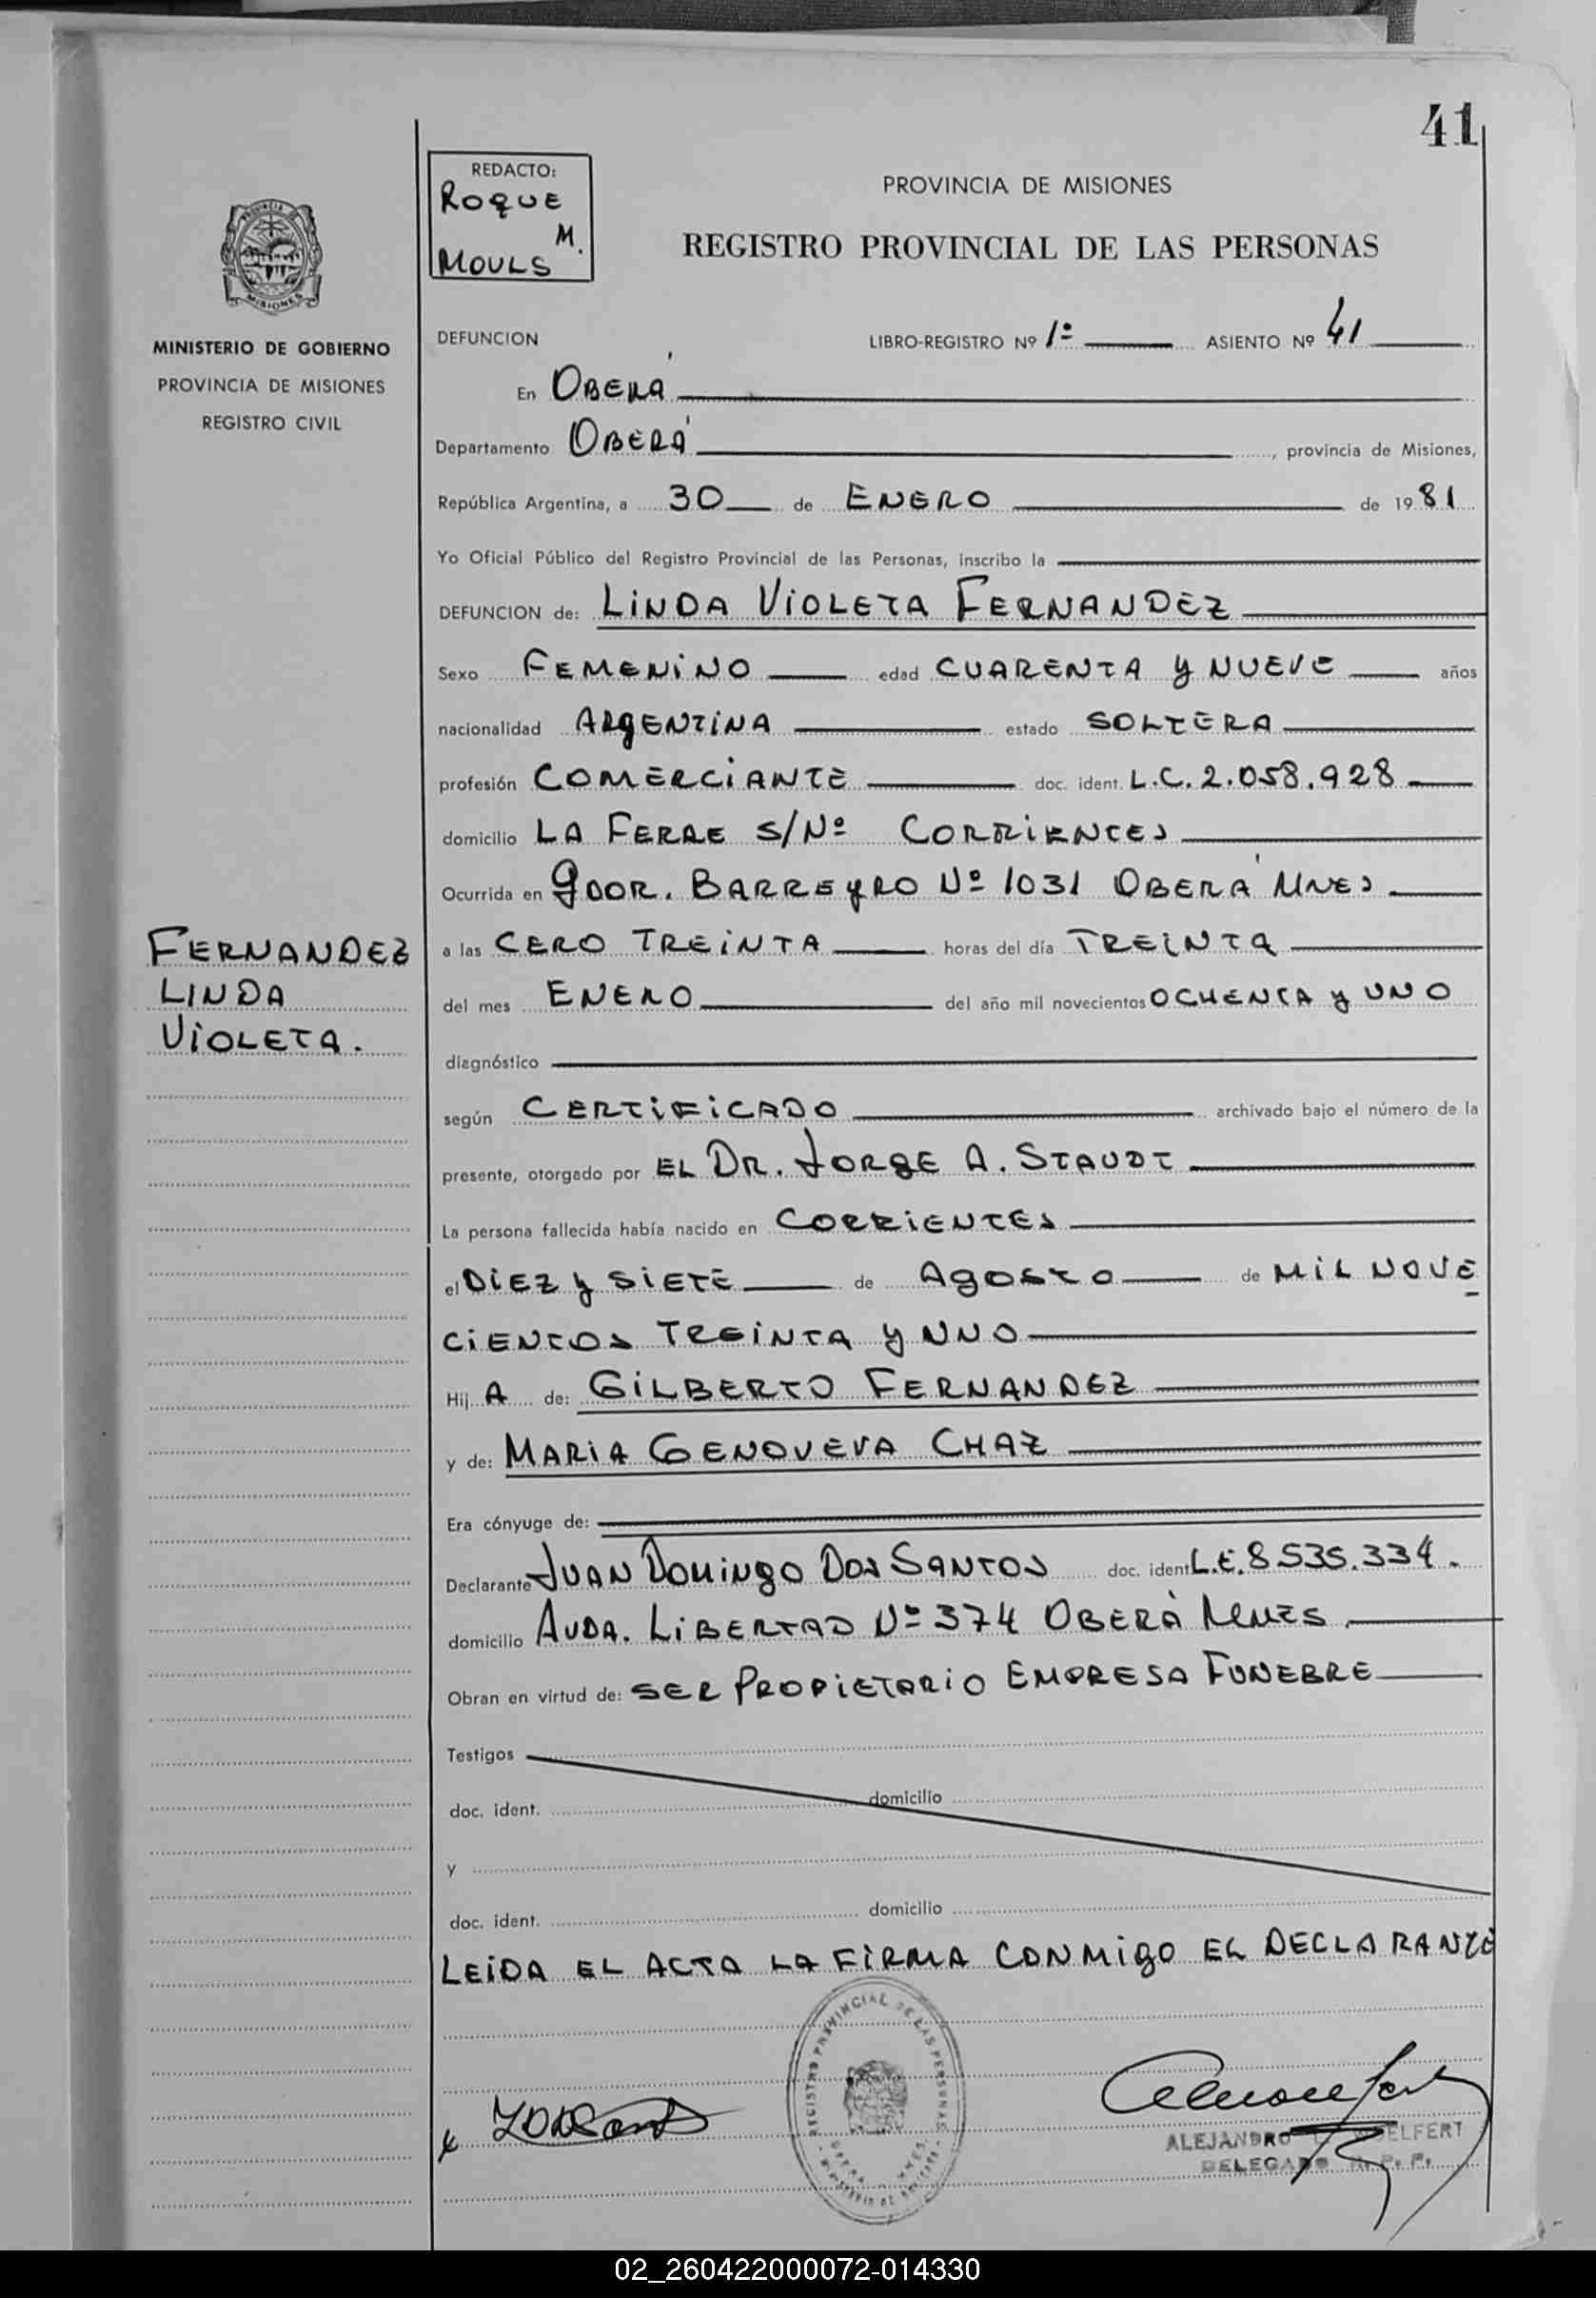 41
REDACTO:
ROQUE
M.
MOULS
PROVINCIA DE MISIONES
REGISTRO PROVINCIAL DE LAS PERSONAS
MISIONES
MINISTERIO DE GOBIERNO
PROVINCIA DE MISIONES
REGISTRO CIVIL
DEFUNCION LIBRO-REGISTRO Nº 1º ASIENTO Nº 41
En OBERÁ
Departamento OBERÁ, provincia de Misiones,
República Argentina, a 30 de ENERO de 1981
Yo Oficial Público del Registro Provincial de las Personas, inscribo la
DEFUNCION de: LINDA VIOLETA FERNANDEZ
Sexo FEMENINO edad CUARENTA y NUEVE años
nacionalidad ARGENTINA estado SOLTERA
profesión COMERCIANTE doc. ident. L.C. 2.058.928
domicilio LA FERRE S/Nº CORRIENTES
Ocurrida en GDOR. BARREYRO Nº 1031 OBERÁ MNES
FERNANDEZ
LINDA
VIOLETA.
a las CERO TREINTA horas del día TREINTA
del mes ENERO del año mil novecientos OCHENTA y UNO
diagnóstico
según CERTIFICADO archivado bajo el número de la
presente, otorgado por EL DR. JORGE A. STAUDT
La persona fallecida había nacido en CORRIENTES
el DIEZ y SIETE de AGOSTO de MIL NOVE
CIENTOS TREINTA y UNO
Hij A de: GILBERTO FERNANDEZ
y de: MARIA GENOVEVA CHAZ
Era cónyuge de:
Declarante JUAN DOMINGO DOS SANTOS doc. ident L.E. 8.535.334.
domicilio AVDA. LIBERTAD Nº 374 OBERÁ MNES
Obran en virtud de: SER PROPIETARIO EMPRESA FUNEBRE
Testigos
doc. ident. domicilio
y
doc. ident. domicilio
LEIDA EL ACTA LA FIRMA CONMIGO EL DECLARANTE
REGISTRO PROVINCIAL DE LAS PERSONAS
ALEJANDRO
DELEGADO R. P. P.
02_260422000072-014330